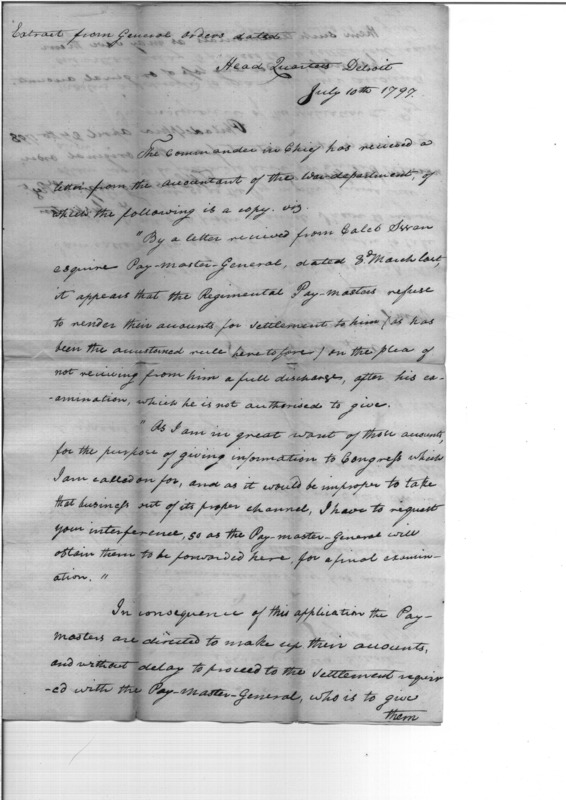 Extract from General orders dated
Head Quarters Detroit
July 10th 1797.
The Commander in Chief has recieved a
letter from the accountant of the war department, of
which the following is a copy. viz.
"By a letter recieved from Caleb Swan
esquire Pay-master-General, dated 3d. March last,
it appears that the Regimental Pay-masters refuse
to render their accounts for settlement to him (as has
been the accustomed rule here to fore) on the plea of
not recieving from him a full discharge, after his ex-
-amination, which he is not authorised to give.
"As I am in great want of those accounts,
for the purpose of giving information to Congress which
I am called on for, and as it would be improper to take
that business out of its proper channel, I have to request
your interference, so as the Pay-master-General will
obtain them to be forwarded here, for a final examin-
ation."
In consequence of this application the Pay-
masters are directed to make up their accounts,
and without delay to proceed to the settlement requir
-ed with the Pay-Master-General, who is to give
them